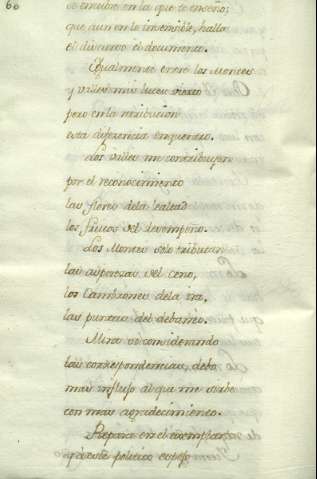 60
se encubre en la que te enseño;
que aun en lo insensible, halla
el discurso el documento.
Igualmente entre los Montes
y valles mis luces vierto
pero en la retribucion
esta diferencia encuentro.
Los valles me contribuyen
por el reconocimiento
las flores de la lealtad
los frutos del desempeño.
Los Montes solo tributan
las asperezas del ceño,
los Cambrones de la ira,
las puntas del
Mira si considerando
las correspondencias, debo
mas influjo al que me sirbe
con mas agradecimiento.
Repara en el exemplar
que este politico espejo